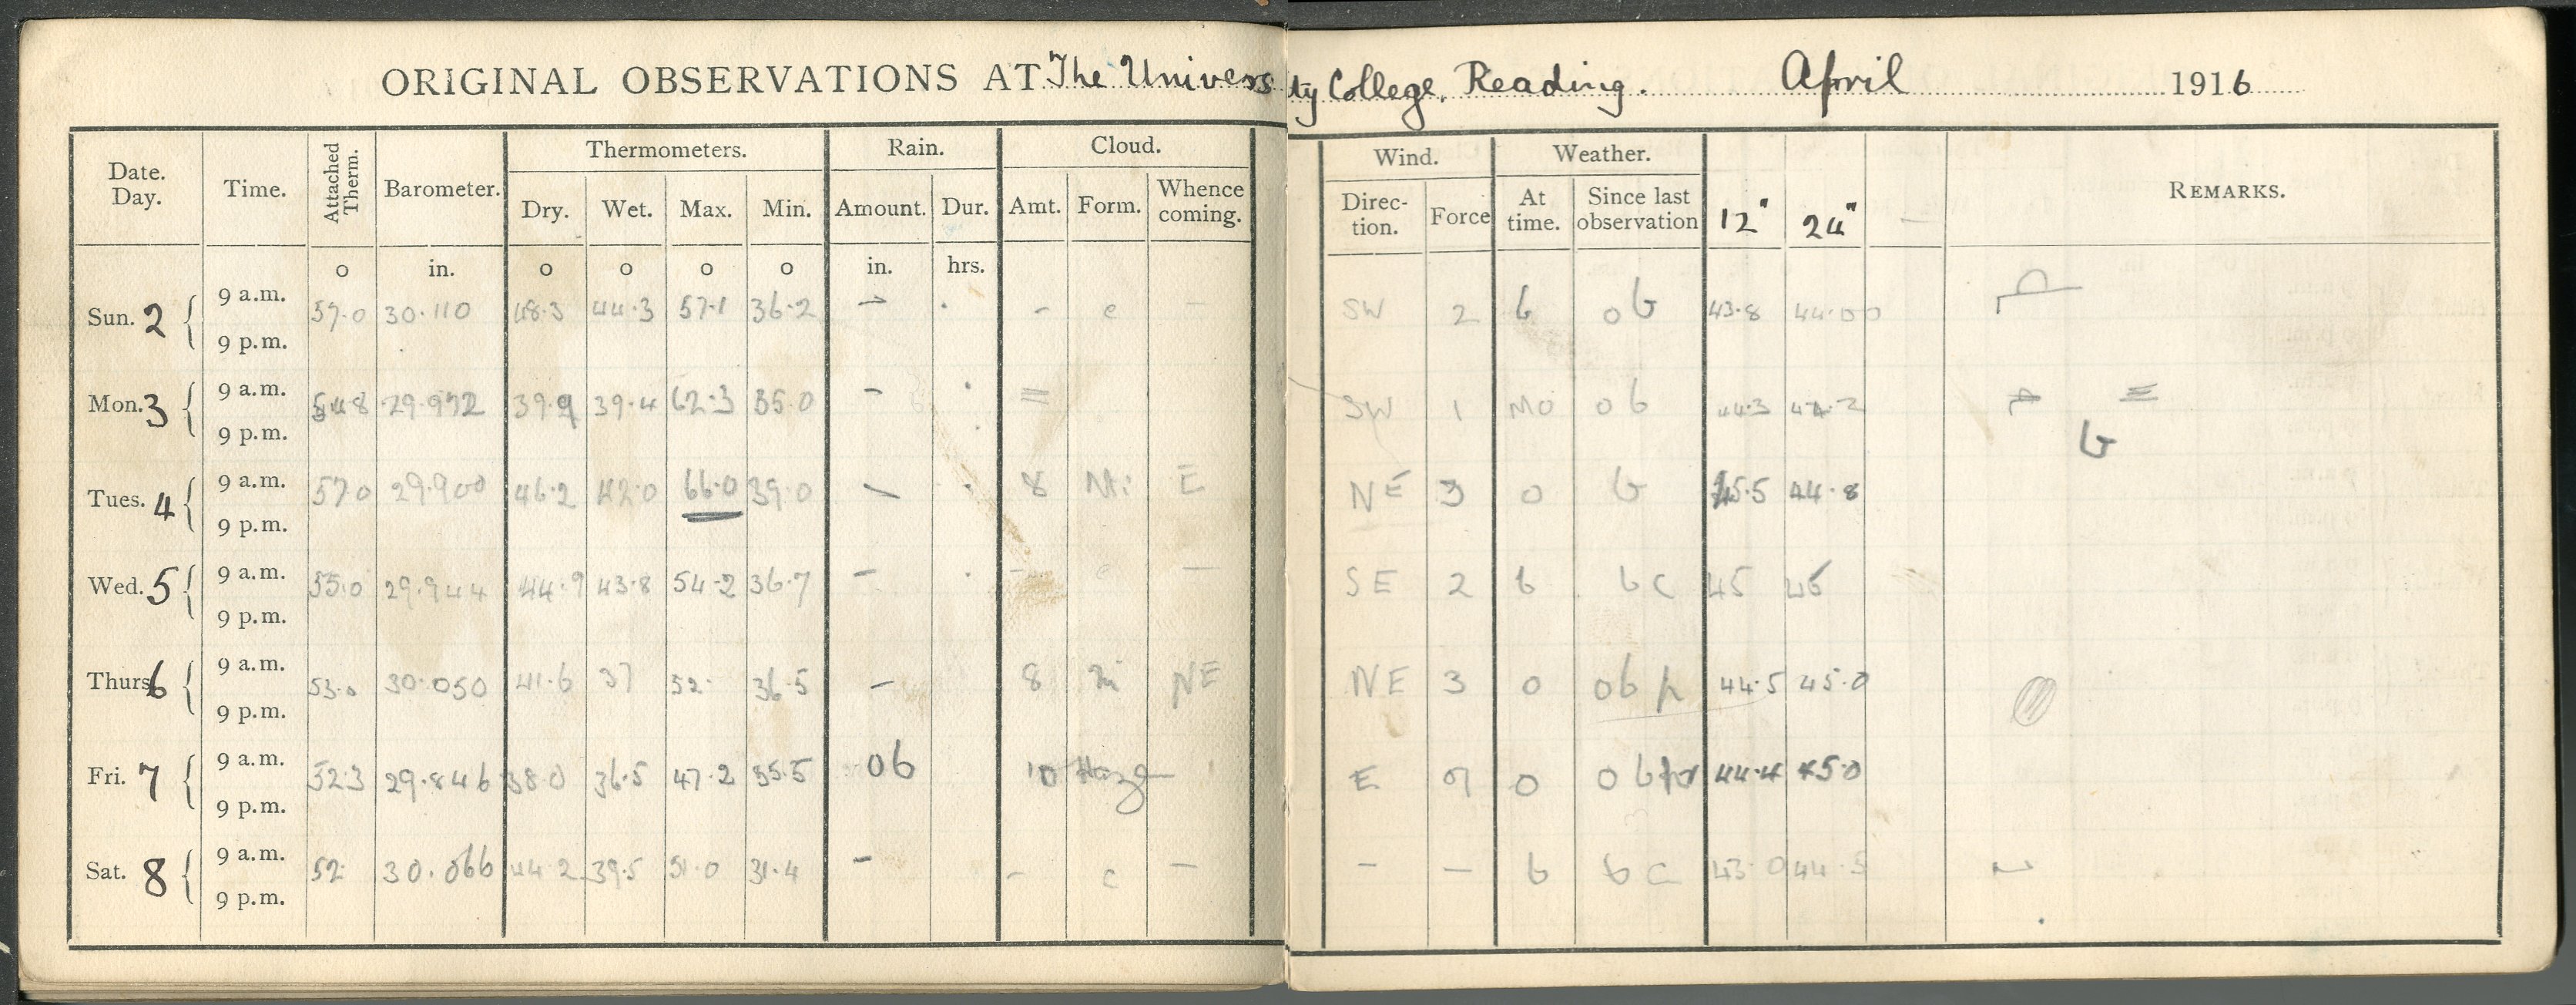 ORIGINAL OBSERVATIONS AT The University College, Reading. April 1916
Date. Day. Time. Attached Therm. Barometer. Thermometers. Rain. Cloud. Wind. Weather. 12" 24" REMARKS.
Dry. Wet. Max. Min. Amount. Dur. Amt. Form. Whence coming. Direc- tion. Force At time. Since last observation
o in. o o o o in. hrs.
Sun. 2 9 a.m. 57.0 30.110 48.3 44.3 57.1 36.2 - - c - SW 2 b ob 43.8 44.00
9 p.m.
Mon. 3 9 a.m. 54.8 29.972 39.9 39.4 62.3 35.0 - = SW 1 mo ob 44.3 44.2 =
9 p.m. b
Tues. 4 9 a.m. 57.0 29.900 46.2 42.0 66.0 39.0 - 8 Ni E NE 3 o b 45.5 44.8
9 p.m.
Wed. 5 9 a.m. 55.0 29.944 44.9 43.8 54.2 36.7 - - c - SE 2 b bc 45 45
9 p.m.
Thurs 6 9 a.m. 53.0 30.050 41.6 37 52. 36.5 - 8 Ni NE NE 3 o ob p 44.5 45.0
9 p.m.
Fri. 7 9 a.m. 52.3 29.846 38.0 36.5 47.2 35.5 06 10 Haze E o o b 44.4 45.0
9 p.m.
Sat. 8 9 a.m. 52. 30.066 44.2 39.5 51.0 31.4 - - c - - - b bc 43.0 44.5
9 p.m.